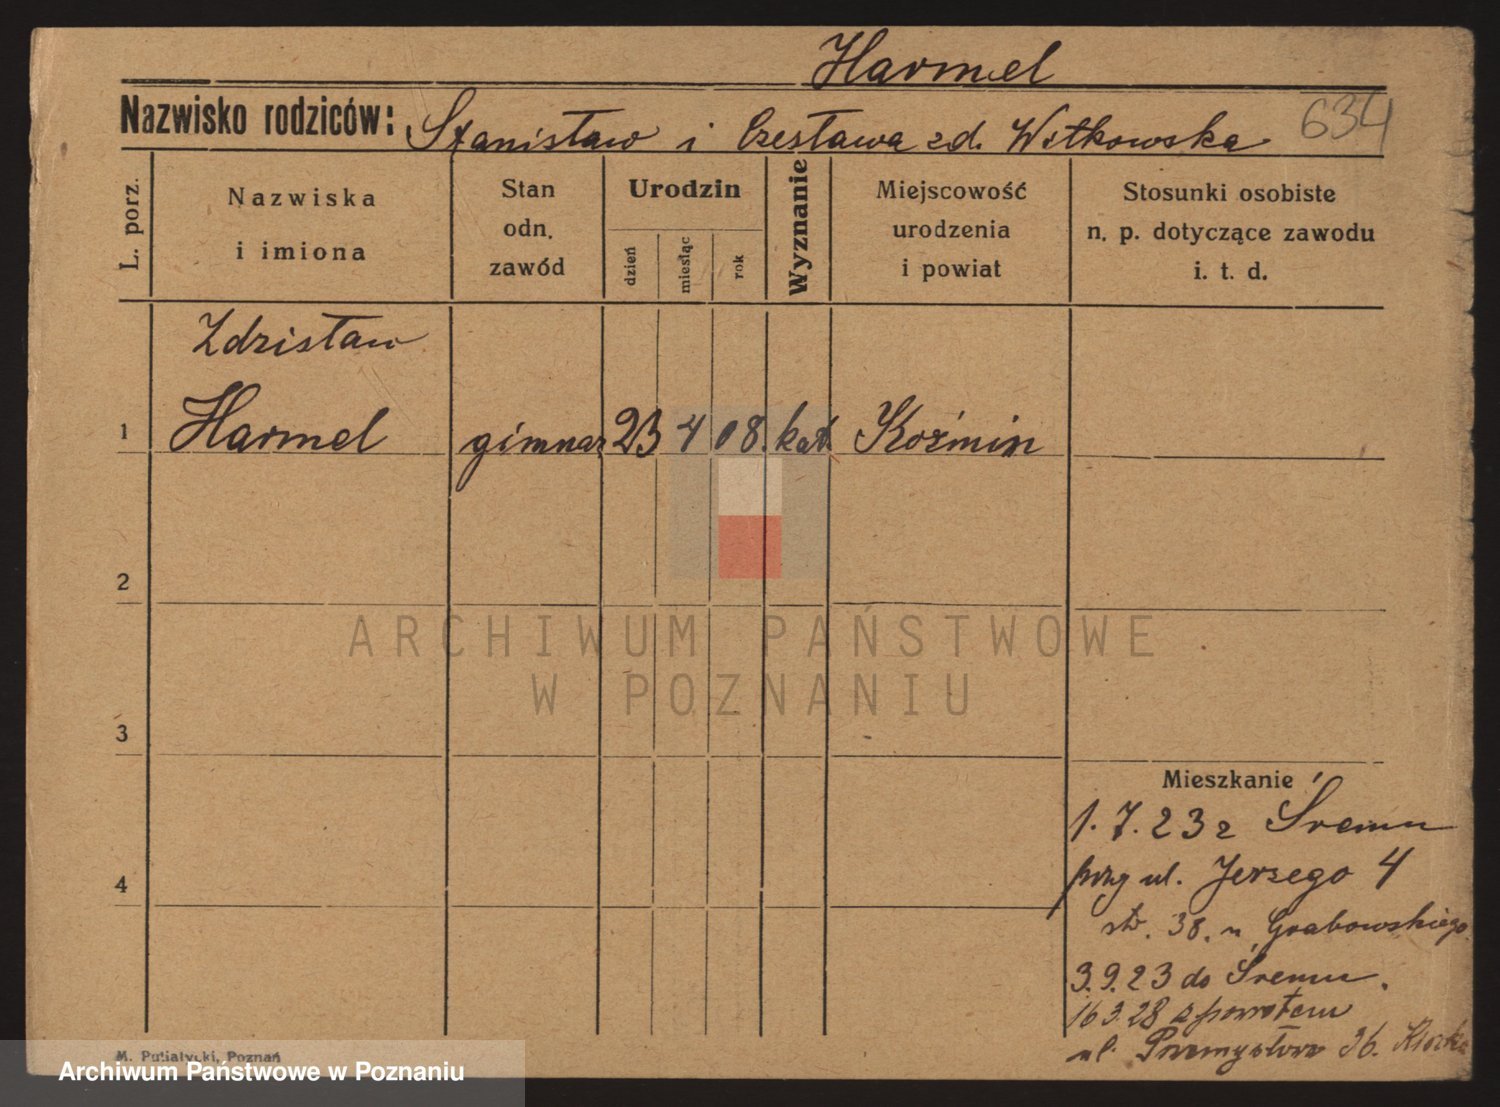 Harmel
Nazwisko rodziców: Stanisław i Czesława zd. Witkowska 634
L. porz.
Nazwiska i imiona
Stan odn. zawód
Urodzin
dzień
miesiąc
rok
Wyznanie
Miejscowość urodzenia i powiat
Stosunki osobiste n. p. dotyczące zawodu i. t. d.
Zdzisław
1 Harmel gimnaz 23 4 08. kat. Koźmin
2
ARCHIWUM PAŃSTWOWE
W POZNANIU
3
Mieszkanie
1. 7. 23 z Śremu
przy ul. Jerzego 4
4
str. 38. u Grabowskiego
3. 9. 23 do Śremu.
16 3. 28 z powrotem
ul. Przemysłowa 36.
M. Putiatycki, Poznań
Archiwum Państwowe w Poznaniu